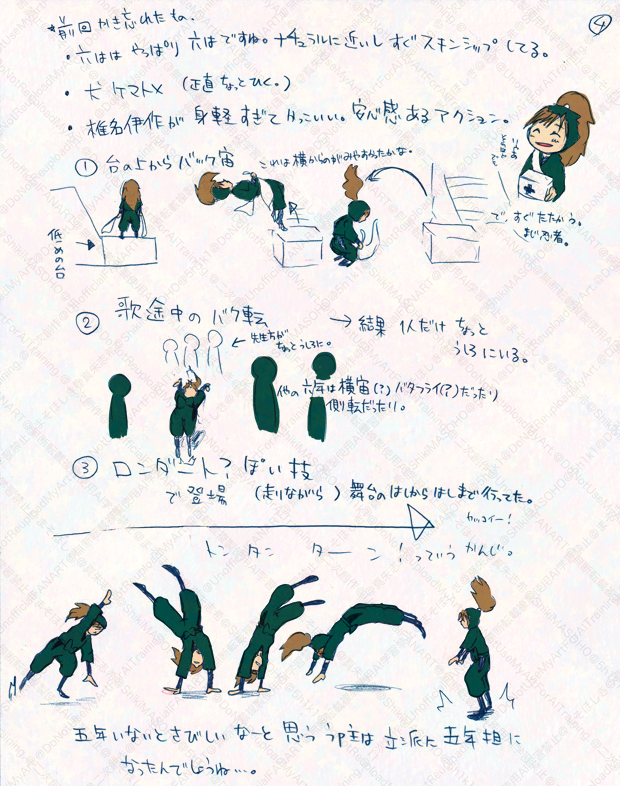 ④
*前回かき忘れたもの。
・六はは やっぱり 六はですね。ナチュラルに近いし すぐ スキンシップ してる。
・犬 ケマトメ (正直 ちょっとひく。)
・椎名伊作が 身軽すぎて かっこいい。安心感ある アクション。
① 台の上から バック宙
これは横からのがみやすかったかな。
低めの台
で、すぐたたかう。
まじ忍者。
② 歌途中の バク転
→ 結果 1人だけ ちょっと
うしろにいる。
← 先生方が
ちょっとうしろに。
他の六年は 横宙(?) バタフライ(?)だったり
側転だったり。
③ ロンダート?ぽい技
で登場 (走りながら) 舞台の はしから はしまで 行ってた。
カッコイー!
トン タン ターン!っていう かんじ。
五年いないと さびしい なーと 思う うp主は 立派に 五年担に
なったんでしょうね…。